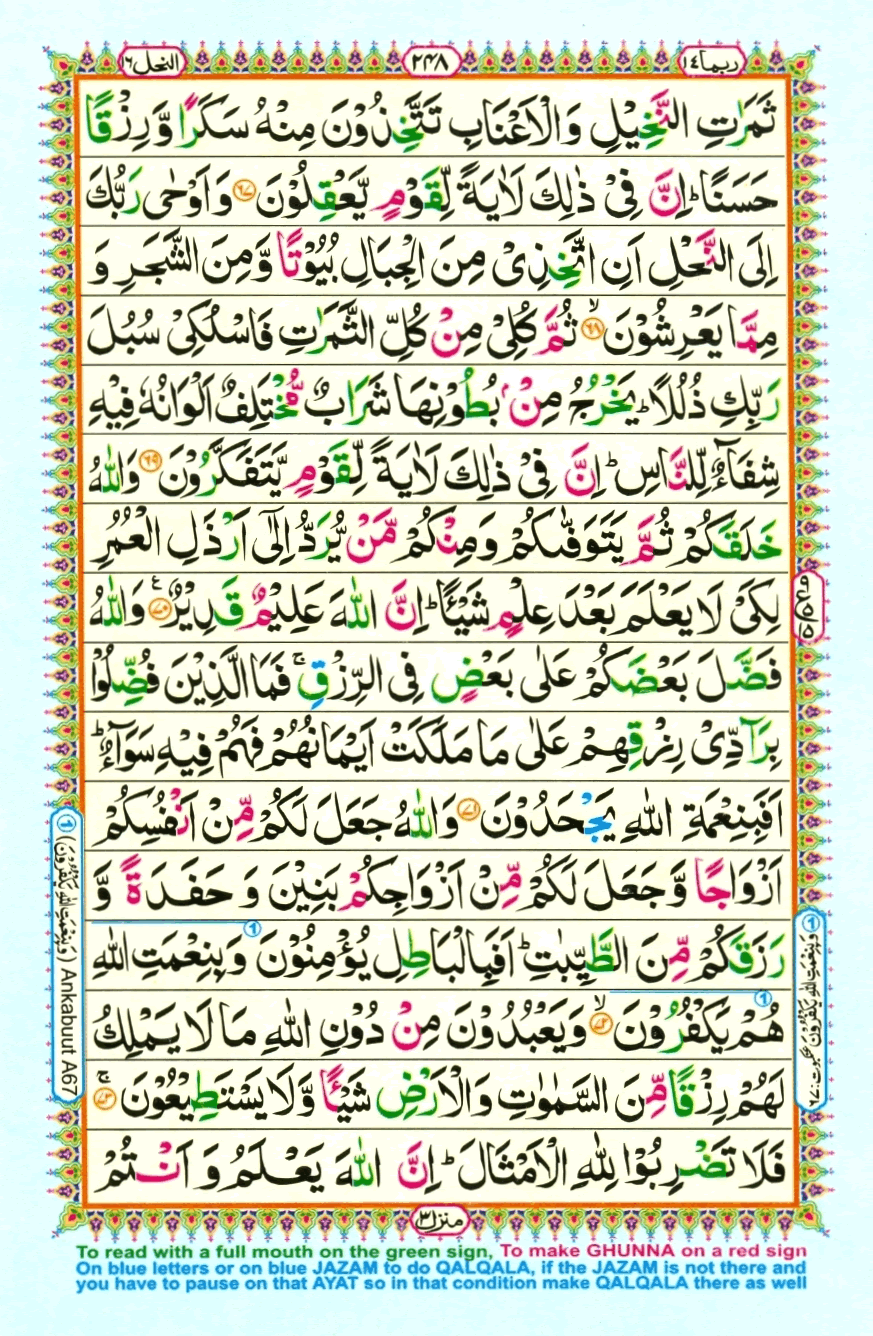 النحل ١٦
٢٤٨
ربما ١٤
ثَمَرٰتِ النَّخِيْلِ وَالْاَعْنَابِ تَتَّخِذُوْنَ مِنْهُ سَكَرًا وَّرِزْقًا
حَسَنًا ؕ اِنَّ فِيْ ذٰلِكَ لَاٰيَةً لِّقَوْمٍ يَّعْقِلُوْنَ ﴿٦٧﴾ وَاَوْحٰى رَبُّكَ
اِلَى النَّحْلِ اَنِ اتَّخِذِيْ مِنَ الْجِبَالِ بُيُوْتًا وَّمِنَ الشَّجَرِ وَ
مِمَّا يَعْرِشُوْنَ ۙ﴿٦٨﴾ ثُمَّ كُلِيْ مِنْ كُلِّ الثَّمَرٰتِ فَاسْلُكِيْ سُبُلَ
رَبِّكِ ذُلُلًا ؕ يَخْرُجُ مِنْۢ بُطُوْنِهَا شَرَابٌ مُّخْتَلِفٌ اَلْوَانُهٗ فِيْهِ
شِفَآءٌ لِّلنَّاسِ ؕ اِنَّ فِيْ ذٰلِكَ لَاٰيَةً لِّقَوْمٍ يَّتَفَكَّرُوْنَ ﴿٦٩﴾ وَاللّٰهُ
خَلَقَكُمْ ثُمَّ يَتَوَفّٰىكُمْ وَمِنْكُمْ مَّنْ يُّرَدُّ اِلٰٓى اَرْذَلِ الْعُمُرِ
لِكَيْ لَا يَعْلَمَ بَعْدَ عِلْمٍ شَيْـًٔا ؕ اِنَّ اللّٰهَ عَلِيْمٌ قَدِيْرٌ ﴿٧٠﴾ ع وَاللّٰهُ
فَضَّلَ بَعْضَكُمْ عَلٰى بَعْضٍ فِي الرِّزْقِ ۚ فَمَا الَّذِيْنَ فُضِّلُوْا
بِرَآدِّيْ رِزْقِهِمْ عَلٰى مَا مَلَكَتْ اَيْمَانُهُمْ فَهُمْ فِيْهِ سَوَآءٌ ؕ
اَفَبِنِعْمَةِ اللّٰهِ يَجْحَدُوْنَ ﴿٧١﴾ وَاللّٰهُ جَعَلَ لَكُمْ مِّنْ اَنْفُسِكُمْ
اَزْوَاجًا وَّجَعَلَ لَكُمْ مِّنْ اَزْوَاجِكُمْ بَنِيْنَ وَ حَفَدَةً وَّ
رَزَقَكُمْ مِّنَ الطَّيِّبٰتِ ؕ اَفَبِالْبَاطِلِ يُؤْمِنُوْنَ وَبِنِعْمَتِ اللّٰهِ
هُمْ يَكْفُرُوْنَ ۙ﴿٧٢﴾ وَيَعْبُدُوْنَ مِنْ دُوْنِ اللّٰهِ مَا لَا يَمْلِكُ
لَهُمْ رِزْقًا مِّنَ السَّمٰوٰتِ وَالْاَرْضِ شَيْـًٔا وَّلَا يَسْتَطِيْعُوْنَ ۚ﴿٧٣﴾
فَلَا تَضْرِبُوْا لِلّٰهِ الْاَمْثَالَ ؕ اِنَّ اللّٰهَ يَعْلَمُ وَ اَنْتُمْ
ع ٩ ٥ ١٥
① وَبِنِعْمَتِ اللّٰهِ يَكْفُرُوْنَ عنكبوت : ٦٧
① (وَبِنِعْمَتِ اللّٰهِ يَكْفُرُوْنَ) Ankabuut A67
منزل ٣
To read with a full mouth on the green sign, To make GHUNNA on a red sign
On blue letters or on blue JAZAM to do QALQALA, if the JAZAM is not there and
you have to pause on that AYAT so in that condition make QALQALA there as well